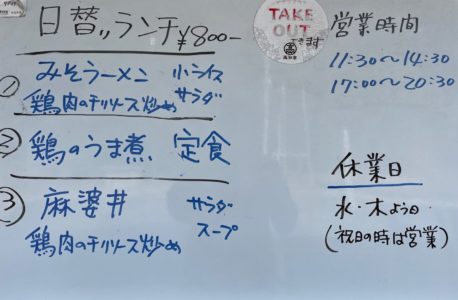 日替りランチ ¥800-
① みそラーメン 小ライス
鶏肉のチリソース炒め サラダ
② 鶏のうま煮 定食
③ 麻婆丼 サラダ
鶏肉のチリソース炒め スープ
TAKE
OUT
できます
営業時間
11:30〜14:30
17:00〜20:30
休業日
水・木よう日
(祝日の時は営業)